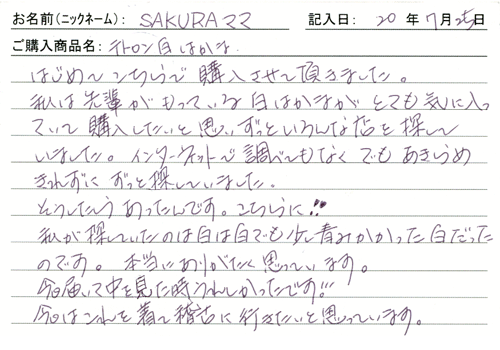 お名前(ニックネーム): SAKURAママ 記入日: 20年7月25日
ご購入商品名: テトロン白はかま
はじめて こちらで 購入させて頂きました。
私は先輩がもっている白はかまがとても気に入っ
ていて購入したいと思い、ずっといろんな店を探して
いました。インターネットで調べてもなく でも あきらめ
きれずに ずっと探していました。
そうしたら あったんです。こちらに!!
私が探していたのは白は白でも少し青みがかった白だった
のです。 本当にありがたく思っています。
今日届いて中を見た時うれしかったです!!
今日はこれを着て稽古に行きたいと思っています。